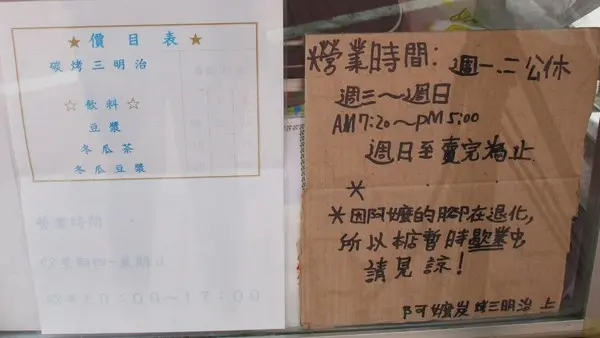 ★ 價目表 ★
碳烤三明治
☆ 飲料 ☆
豆漿
冬瓜茶
冬瓜豆漿
營業時間
17:00
營業時間: 週一.二公休
週三～週日
AM7:20～PM5:00
週日至賣完為止
*
*因阿嬤的腳在退化,
所以本店暫時歇業中
請見諒!
阿嬤炭烤三明治 上